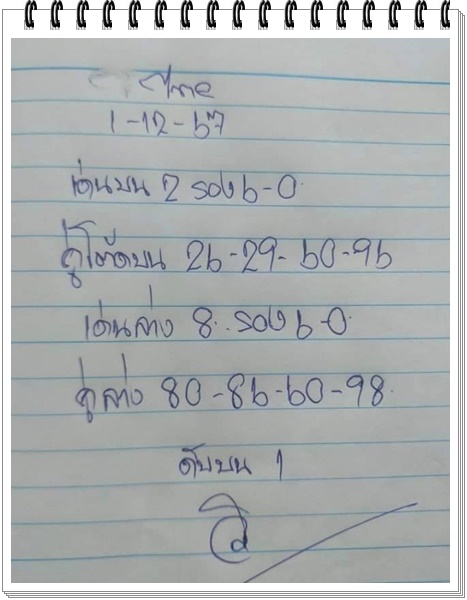 1-12-67
เด่นบน 2 รอง 6-0
คู่โต๊ดบน 26-29-60-96
เด่นล่าง 8..รอง 6-0
คู่ล่าง 80-86-60-98.
ดับบน 1